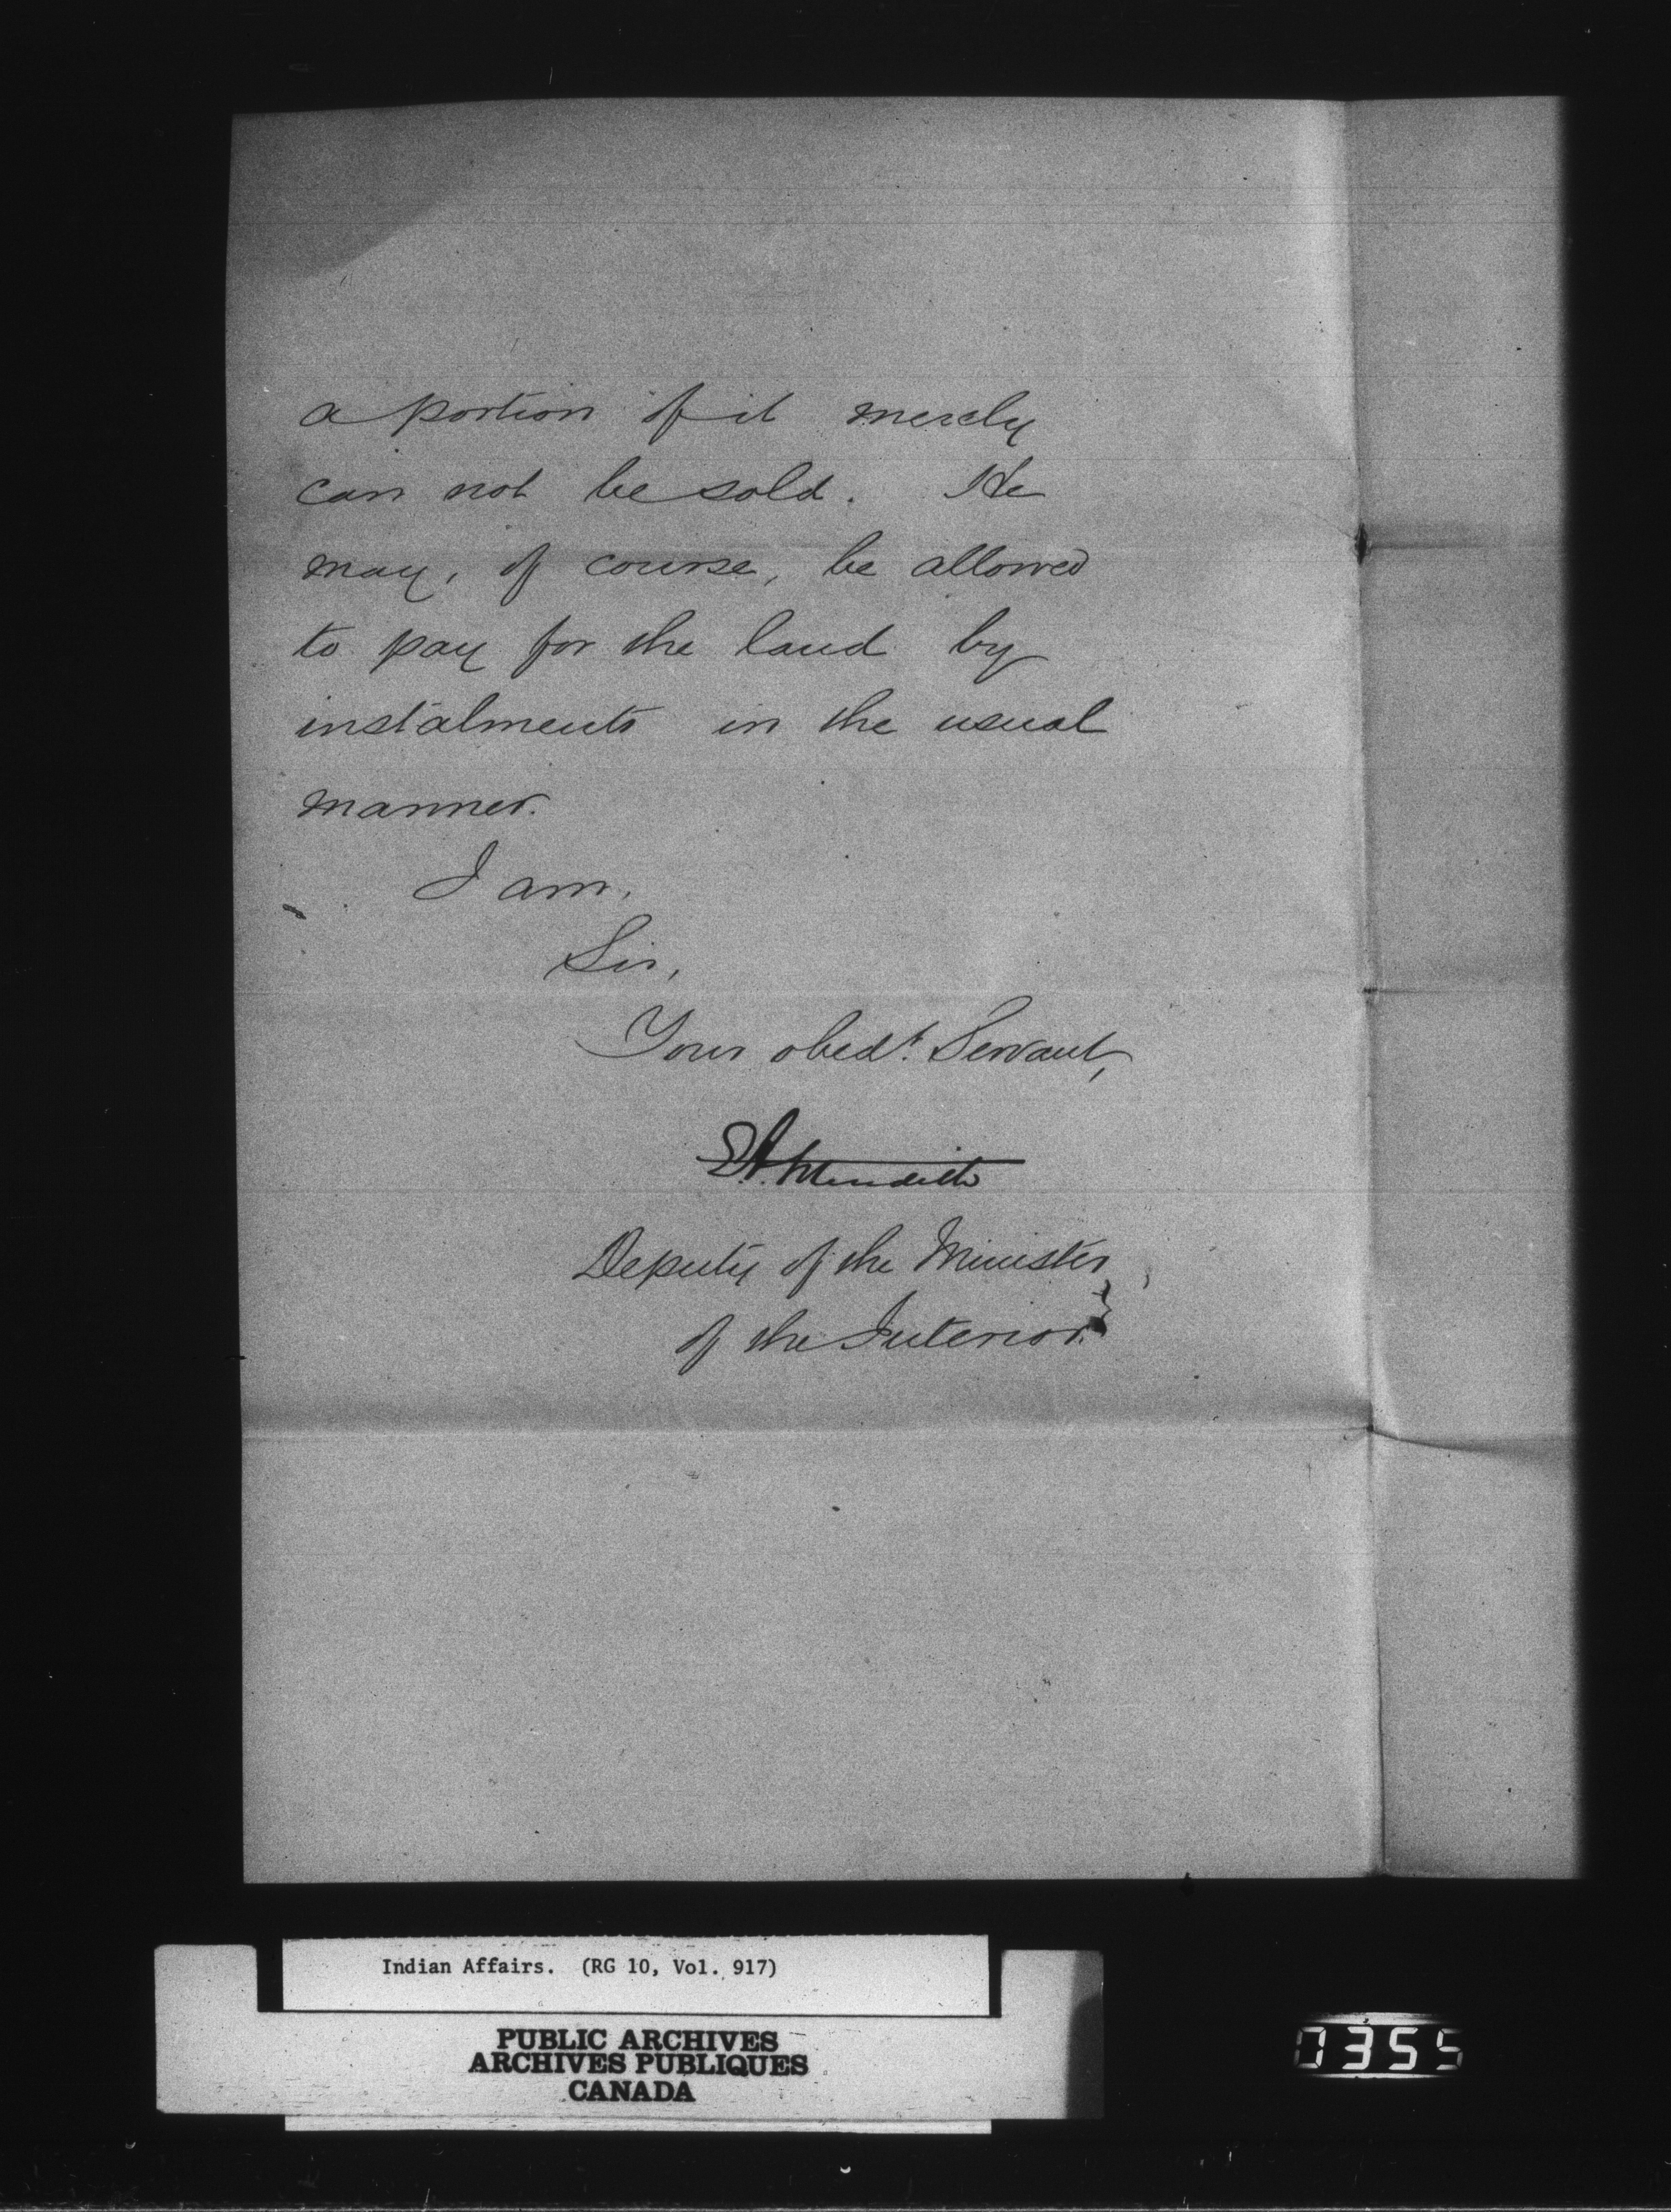 a portion of it merely
can not be sold. He
may, of course, be allowed
to pay for the land by
instalments in the usual
manner.
I am,
Sir,
Your obedt. Servant,
E.A. Meredith
Deputy of the Minister
of the Interior.
Indian Affairs. (RG 10, Vol. 917)
PUBLIC ARCHIVES
ARCHIVES PUBLIQUES
CANADA
0355